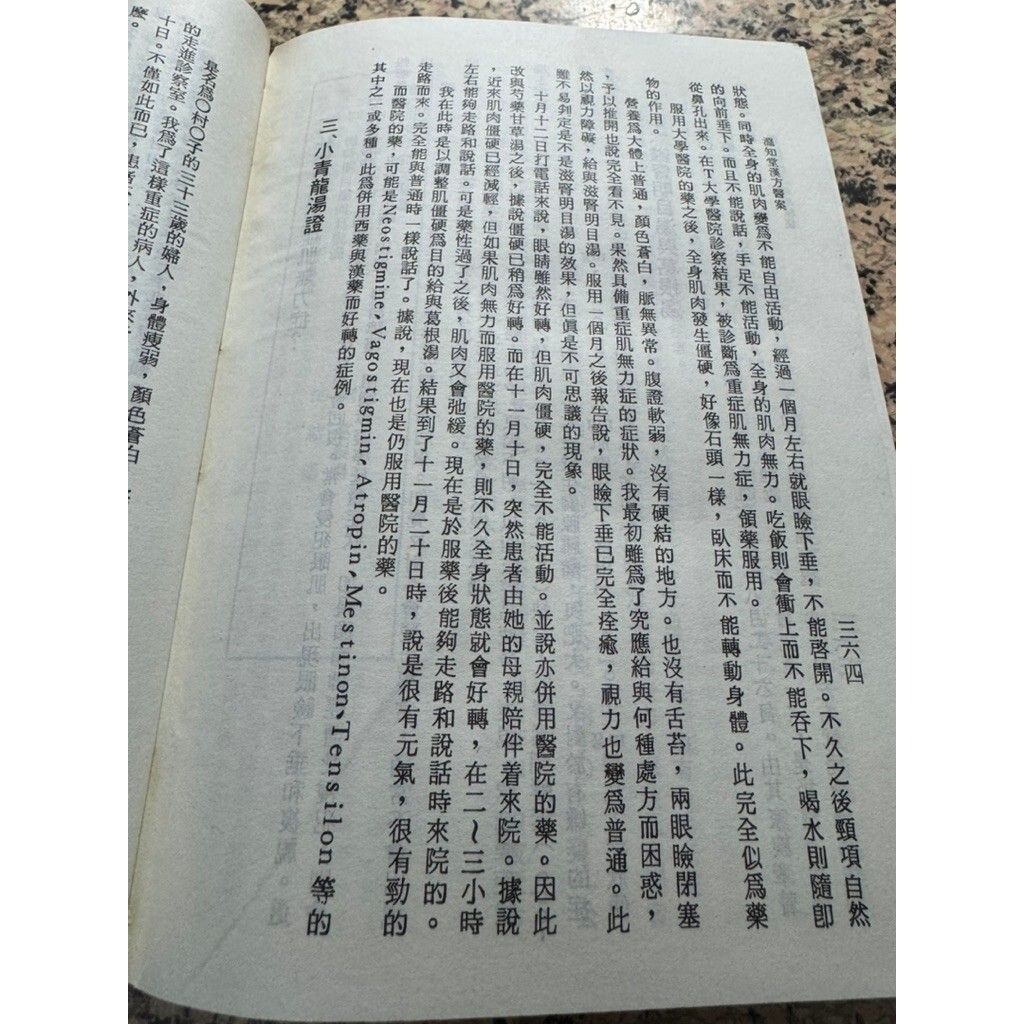 溫知堂漢方醫案
三六四
狀態。同時全身的肌肉變爲不能自由活動，經過一個月左右就眼瞼下垂，不能啓開。不久之後頸項自然
的向前垂下。而且不能說話，手足不能活動，全身的肌肉無力。吃飯則會衝上而不能吞下，喝水則隨卽
從鼻孔出來。在T大學醫院診察結果，被診斷爲重症肌無力症，領藥服用。
服用大學醫院的藥之後，全身肌肉發生僵硬，好像石頭一樣，臥床而不能轉動身體。此完全似爲藥
物的作用。
營養爲大體上普通，顏色蒼白，脈無異常。腹證軟弱，沒有硬結的地方。也沒有舌苔，兩眼瞼閉塞
，予以推開也說完全看不見。果然具備重症肌無力症的症狀。我最初雖爲了究應給與何種處方而困惑，
然以視力障礙，給與滋腎明目湯。服用一個月之後報告說，眼瞼下垂已完全痊癒，視力也變爲普通。此
雖不易判定是不是滋腎明目湯的效果，但眞是不可思議的現象。
十月十二日打電話來說，眼睛雖然好轉，但肌肉僵硬，完全不能活動。並說亦併用醫院的藥。因此
改與芍藥甘草湯之後，據說僵硬已稍爲好轉。而在十一月十日，突然患者由她的母親陪伴着來院。據說
，近來肌肉僵硬已經減輕，但如果肌肉無力而服用醫院的藥，則不久全身狀態就會好轉，在二～三小時
左右能夠走路和說話。可是藥性過了之後，肌肉又會弛緩。現在是於服藥後能夠走路和說話時來院的。
我在此時是以調整肌僵硬爲目的給與葛根湯。結果到了十一月二十日時，說是很有元氣，很有勁的
走路而來。完全能與普通時一樣說話了。據說，現在也是仍服用醫院的藥。
而醫院的藥，可能是Neostigmine、Vagostigmin、Atropin、Mestinon、Tensilon 等的
其中之一或多種。此爲併用西藥與漢藥而好轉的症例。
三、小青龍湯證
是名爲○村○子的三十三歲的婦人，身體瘦弱，顏色蒼白
的走進診察室。我爲了這樣重症的病人，
十日。不僅如此而已，患者